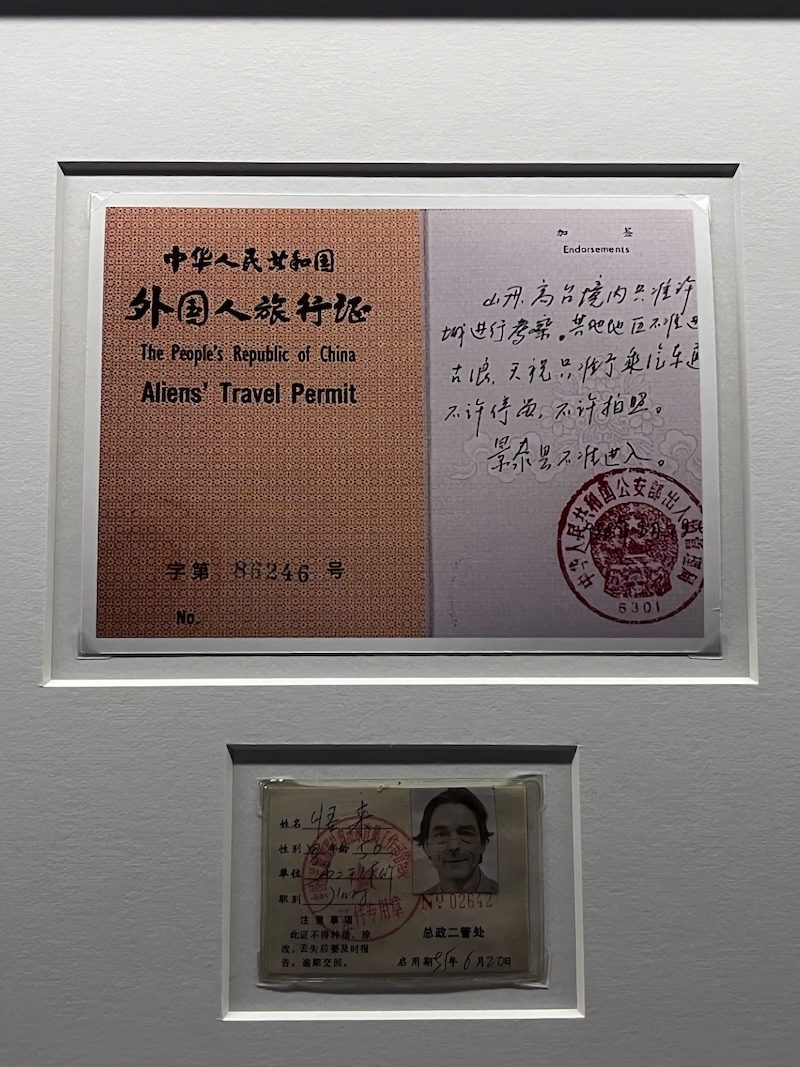 中华人民共和国
外国人旅行证
The People's Republic of China
Aliens' Travel Permit
字第 86246 号
No.
加 签
Endorsements
山丹、高台境内只准许
城进行考察。其他地区不准进
古浪、天祝只准予乘汽车通
不许停留,不许拍照。
景泰县不准进入。
中华人民共和国公安部出入管理局
6301
姓名
性别 男 年龄 50
单位
职别
注意事项
此证不得转借、涂
改,丢失后要及时报
告。逾期交回。
证件专用章
№ 02642
总政二管处
启用期 95年 6月20日